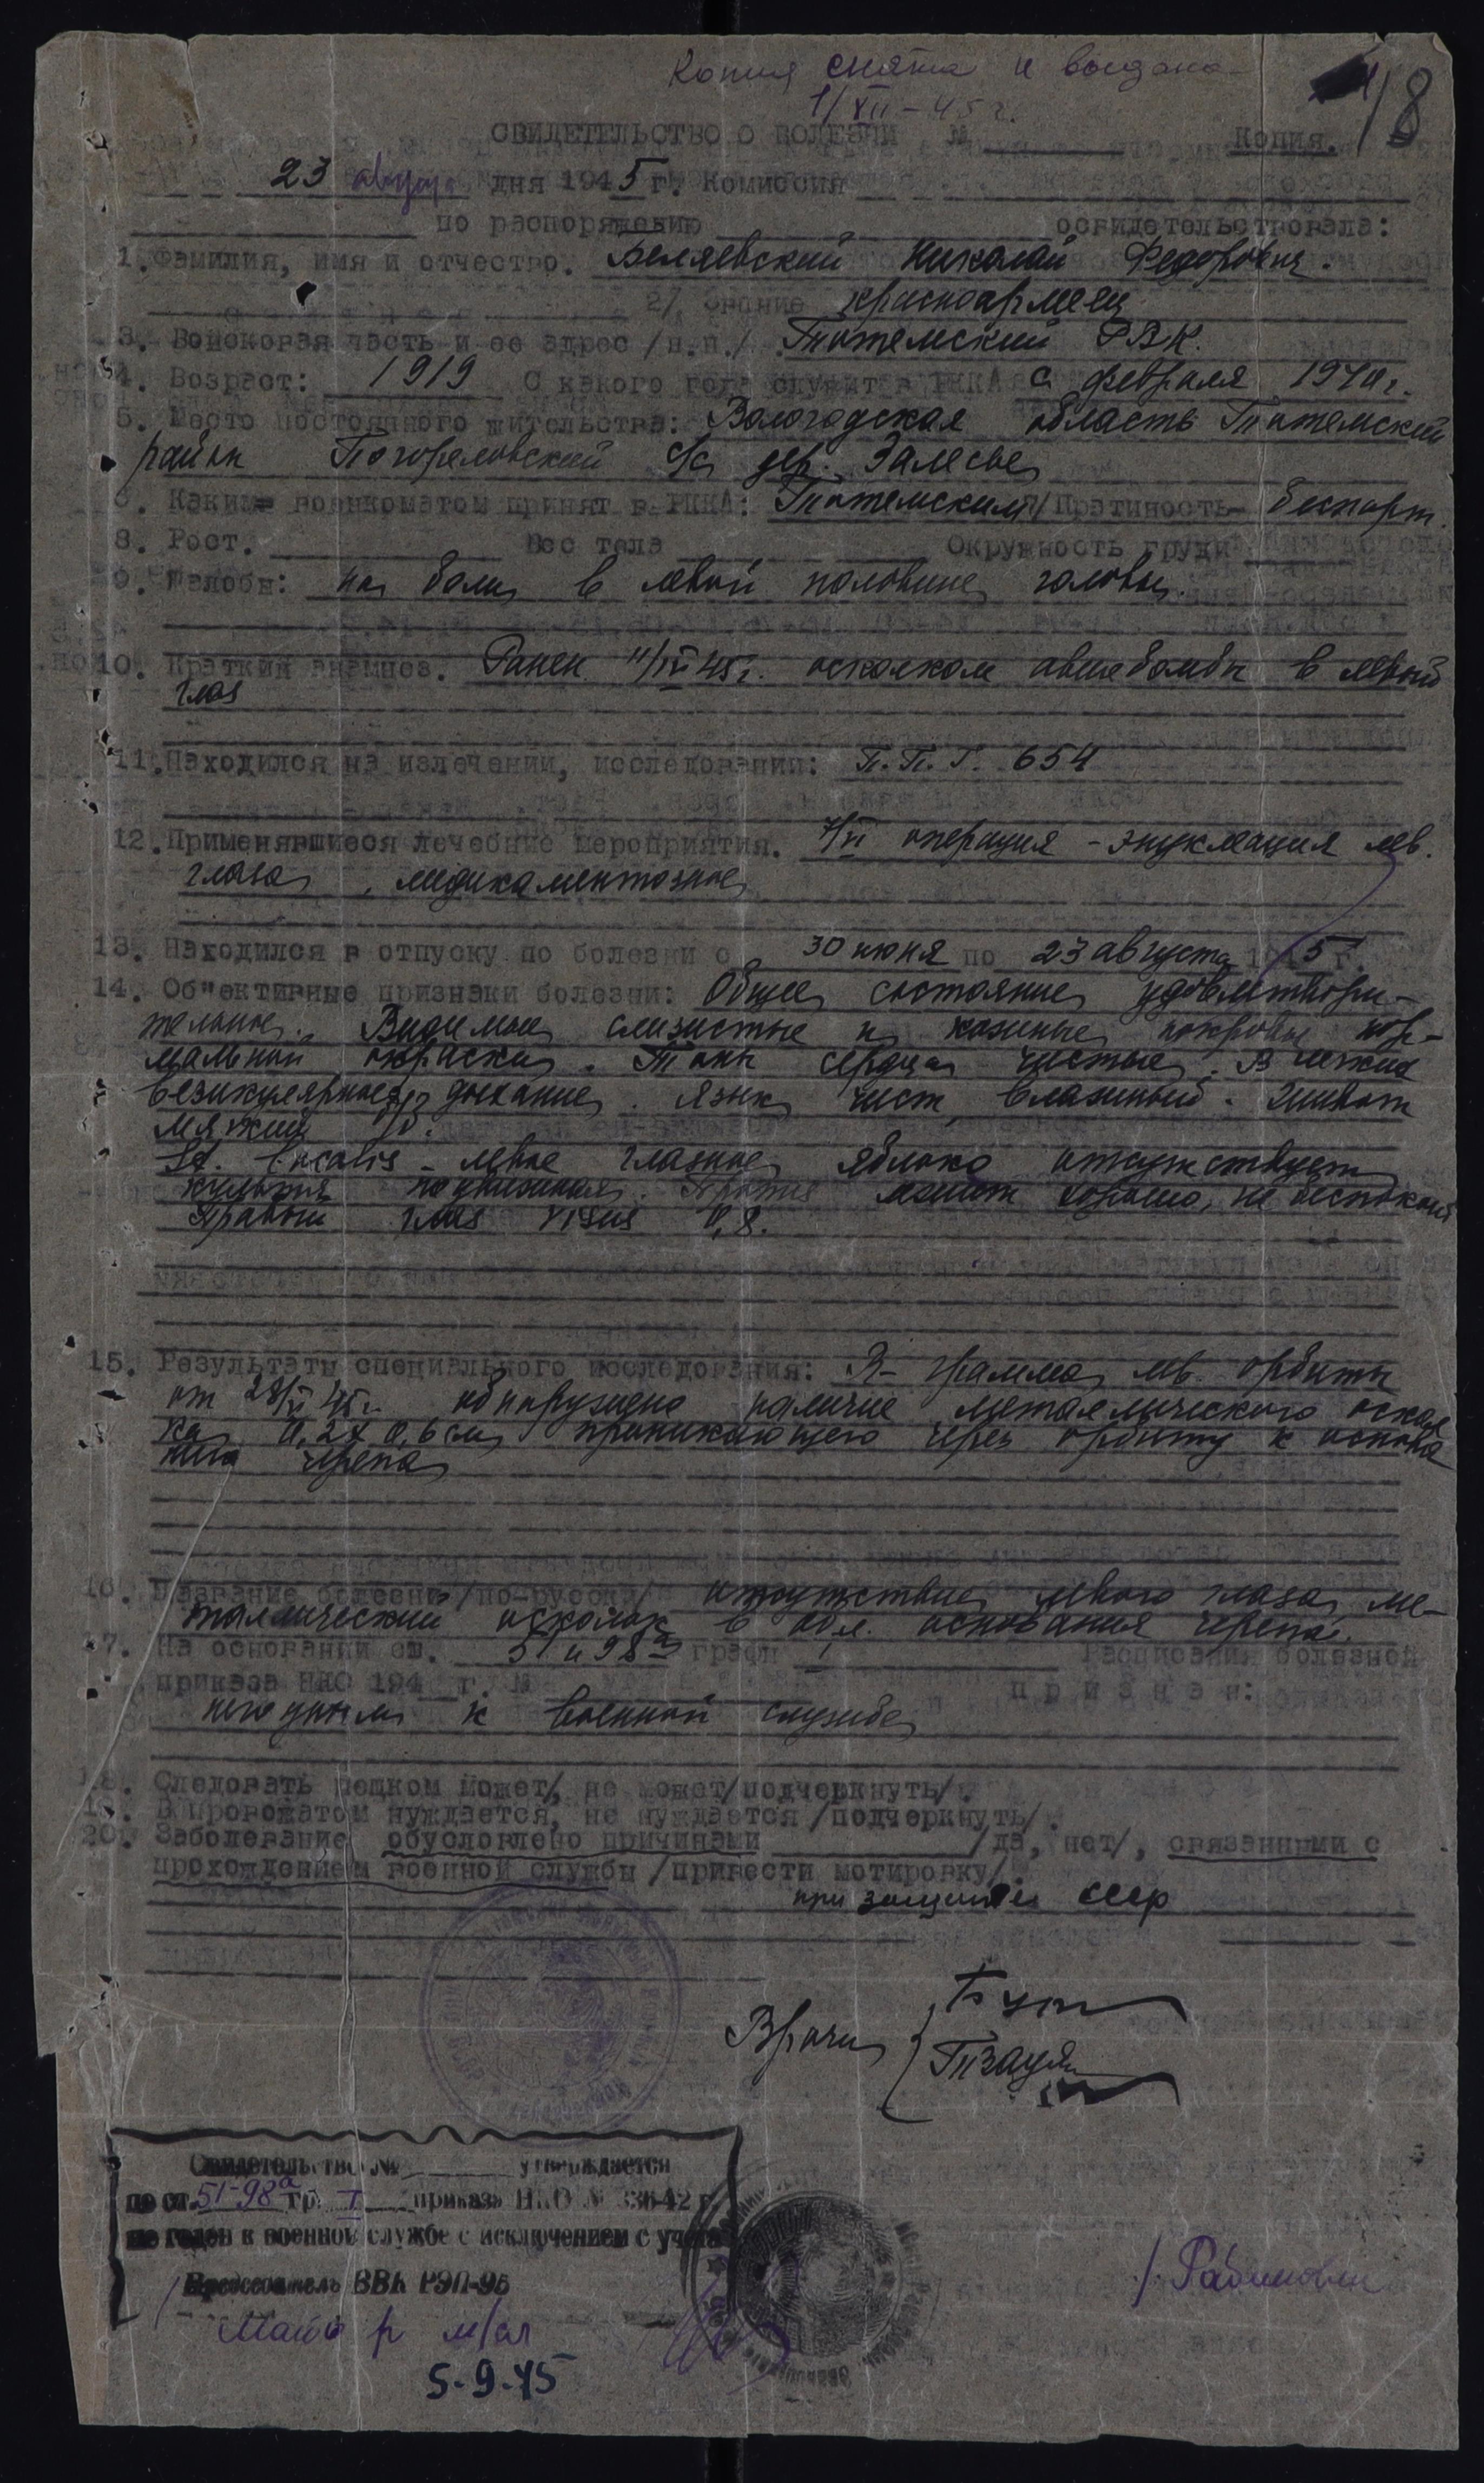 Копия снята и выдана
1/XII-45 г.
18
СВИДЕТЕЛЬСТВО О БОЛЕЗНИ № Копия.
23 августа дня 1945 г. Комиссия
по распоряжению освидетельствовала:
1. Фамилия, имя и отчество. Беляевский Николай Федорович.
2/. Звание красноармеец
3. Войсковая часть и ее адрес /п.п./ Тотемский РВК.
4. Возраст: 1919 С какого года служит в РККА с февраля 1940 г.
5. Место постоянного жительства: Вологодская область Тотемский
район Погореловский с/с дер. Залесье
6. Каким военкоматом принят в РККА: Тотемским 7/ Пратиность- беспарт.
8. Рост. Вес тела Окружность груди
9. Жалобы: на боли в левой половине головы.
10. Краткий анамноз. Ранен 11/IV 45 г. осколком авиабомбы в левый
глаз
11. Находился на излечении, исследовании: П.П.Г. 654
12. Применявшиеся лечебные мероприятия. операция - энуклеация лев.
глаза, медикаментозное
13. Находился в отпуску по болезни с 30 июня по 23 августа 1945 г.
14. Об"ективные признаки болезни: Общее состояние удовлетвори-
тельное. Видимые слизистые и кожные покровы нор-
мальной окраски. Тоны сердца чистые. В легких
везикулярное дыхание. Язык чист, влажный. Живот
мягкий б/б.
St. localis - левое глазное яблоко отсутствует
культя подвижная. Протез лежит хорошо, не беспокоит
Правый глаз visus 0,8.
15. Результаты специального исследования: R-грамма лев. орбиты
от 28/ 45 г. обнаружено наличие металлического оскол
ка 0,2х0,6 см, проникающего через орбиту к основа
нию черепа
16. Название болезни /по-русски/ отсутствие левого глаза, ме-
таллический осколок в обл. основания черепа.
17. На основании ст. 51 и 98 а граф I Расписания болезней
приказа НКО 194 г. № признан:
негодным к военной службе
18. Следовать пешком может/, не может/подчеркнуть/.
19. В провожатом нуждается, не нуждается /подчеркнуть/.
20. Заболевание обусловлено причинами /да, нет/, связанными с
прохождением военной службы /привести мотировку/.
при защите СССР
Врачи
Свидетельство № утверждается
по ст. 51-98а гр. I приказа НКО № 336-42 г.
не годен к военной службе с исключением с учета
Председатель ВВК РЭП-95
Майор м/сл
/Рабинович
5-9-45